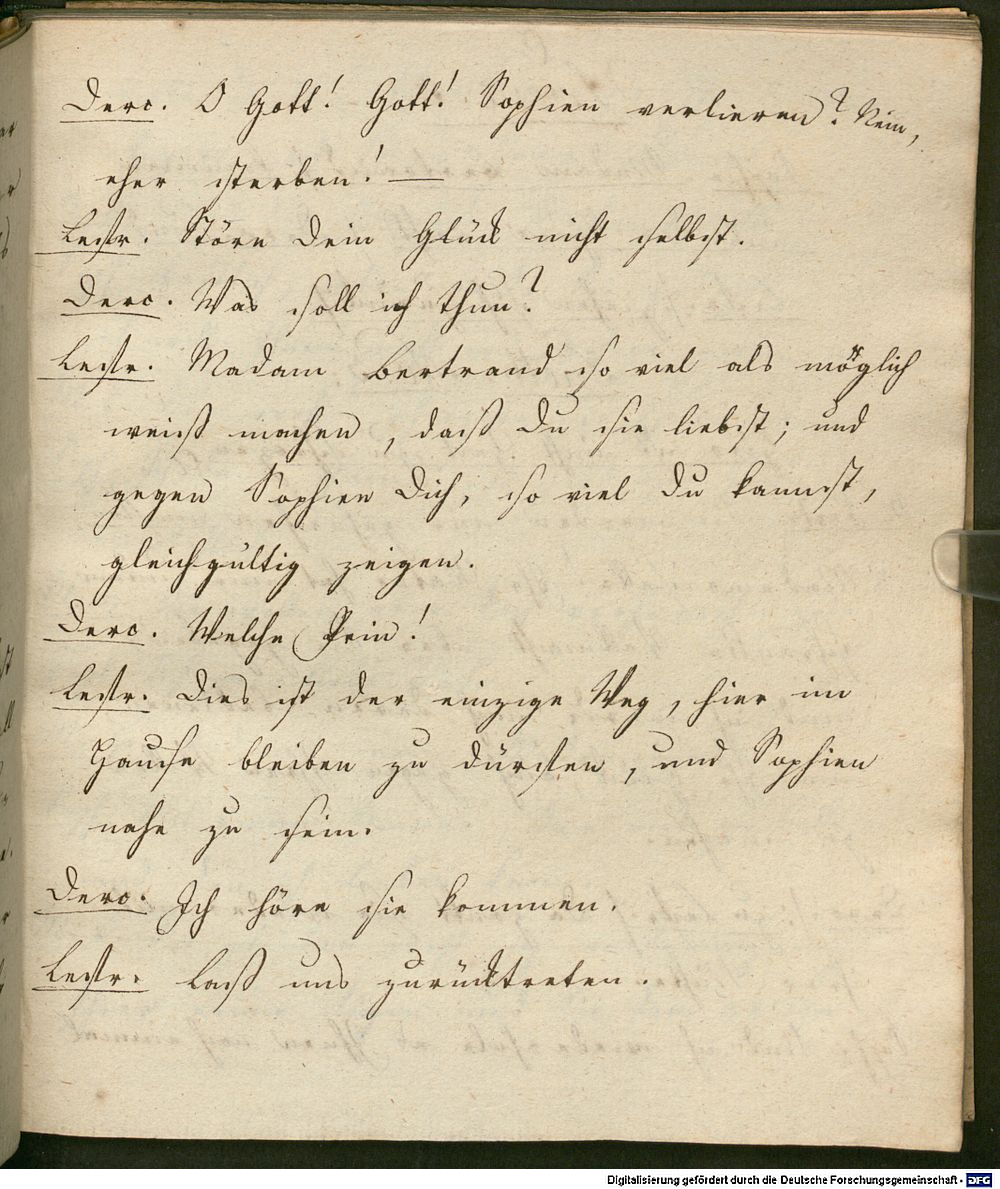 Derv. O Gott! Gott! Sophien verlieren? Nein,
eher sterben! —
Lestr. Störe Dein Glück nicht selbst.
Derv. Was soll ich thun?
Lestr. Madam Bertrand so viel als möglich
weiß machen, daß Du sie liebst; und
gegen Sophien Dich, so viel Du kannst,
gleichgültig zeigen.
Derv. Welche Pein!
Lestr. Dies ist der einzige Weg, hier im
Hause bleiben zu dürfen, und Sophien
nahe zu sein.
Derv. Ich höre sie kommen.
Lestr. Laß uns zurücktreten.
Digitalisierung gefördert durch die Deutsche Forschungsgemeinschaft - DFG